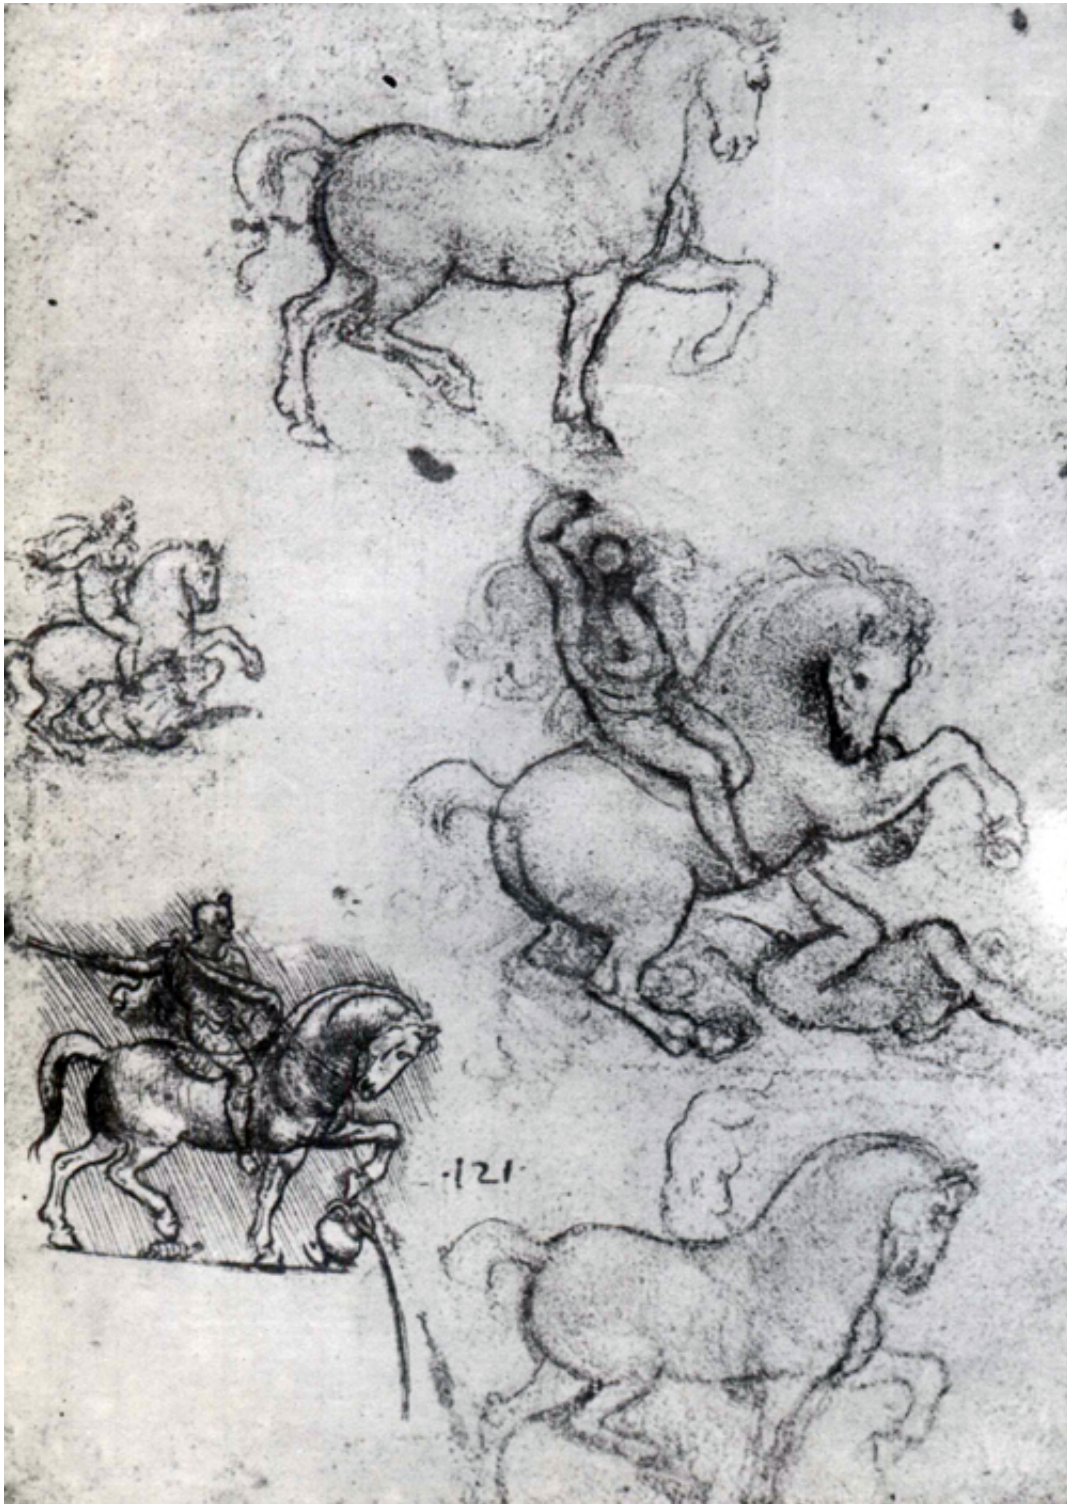 ·121·